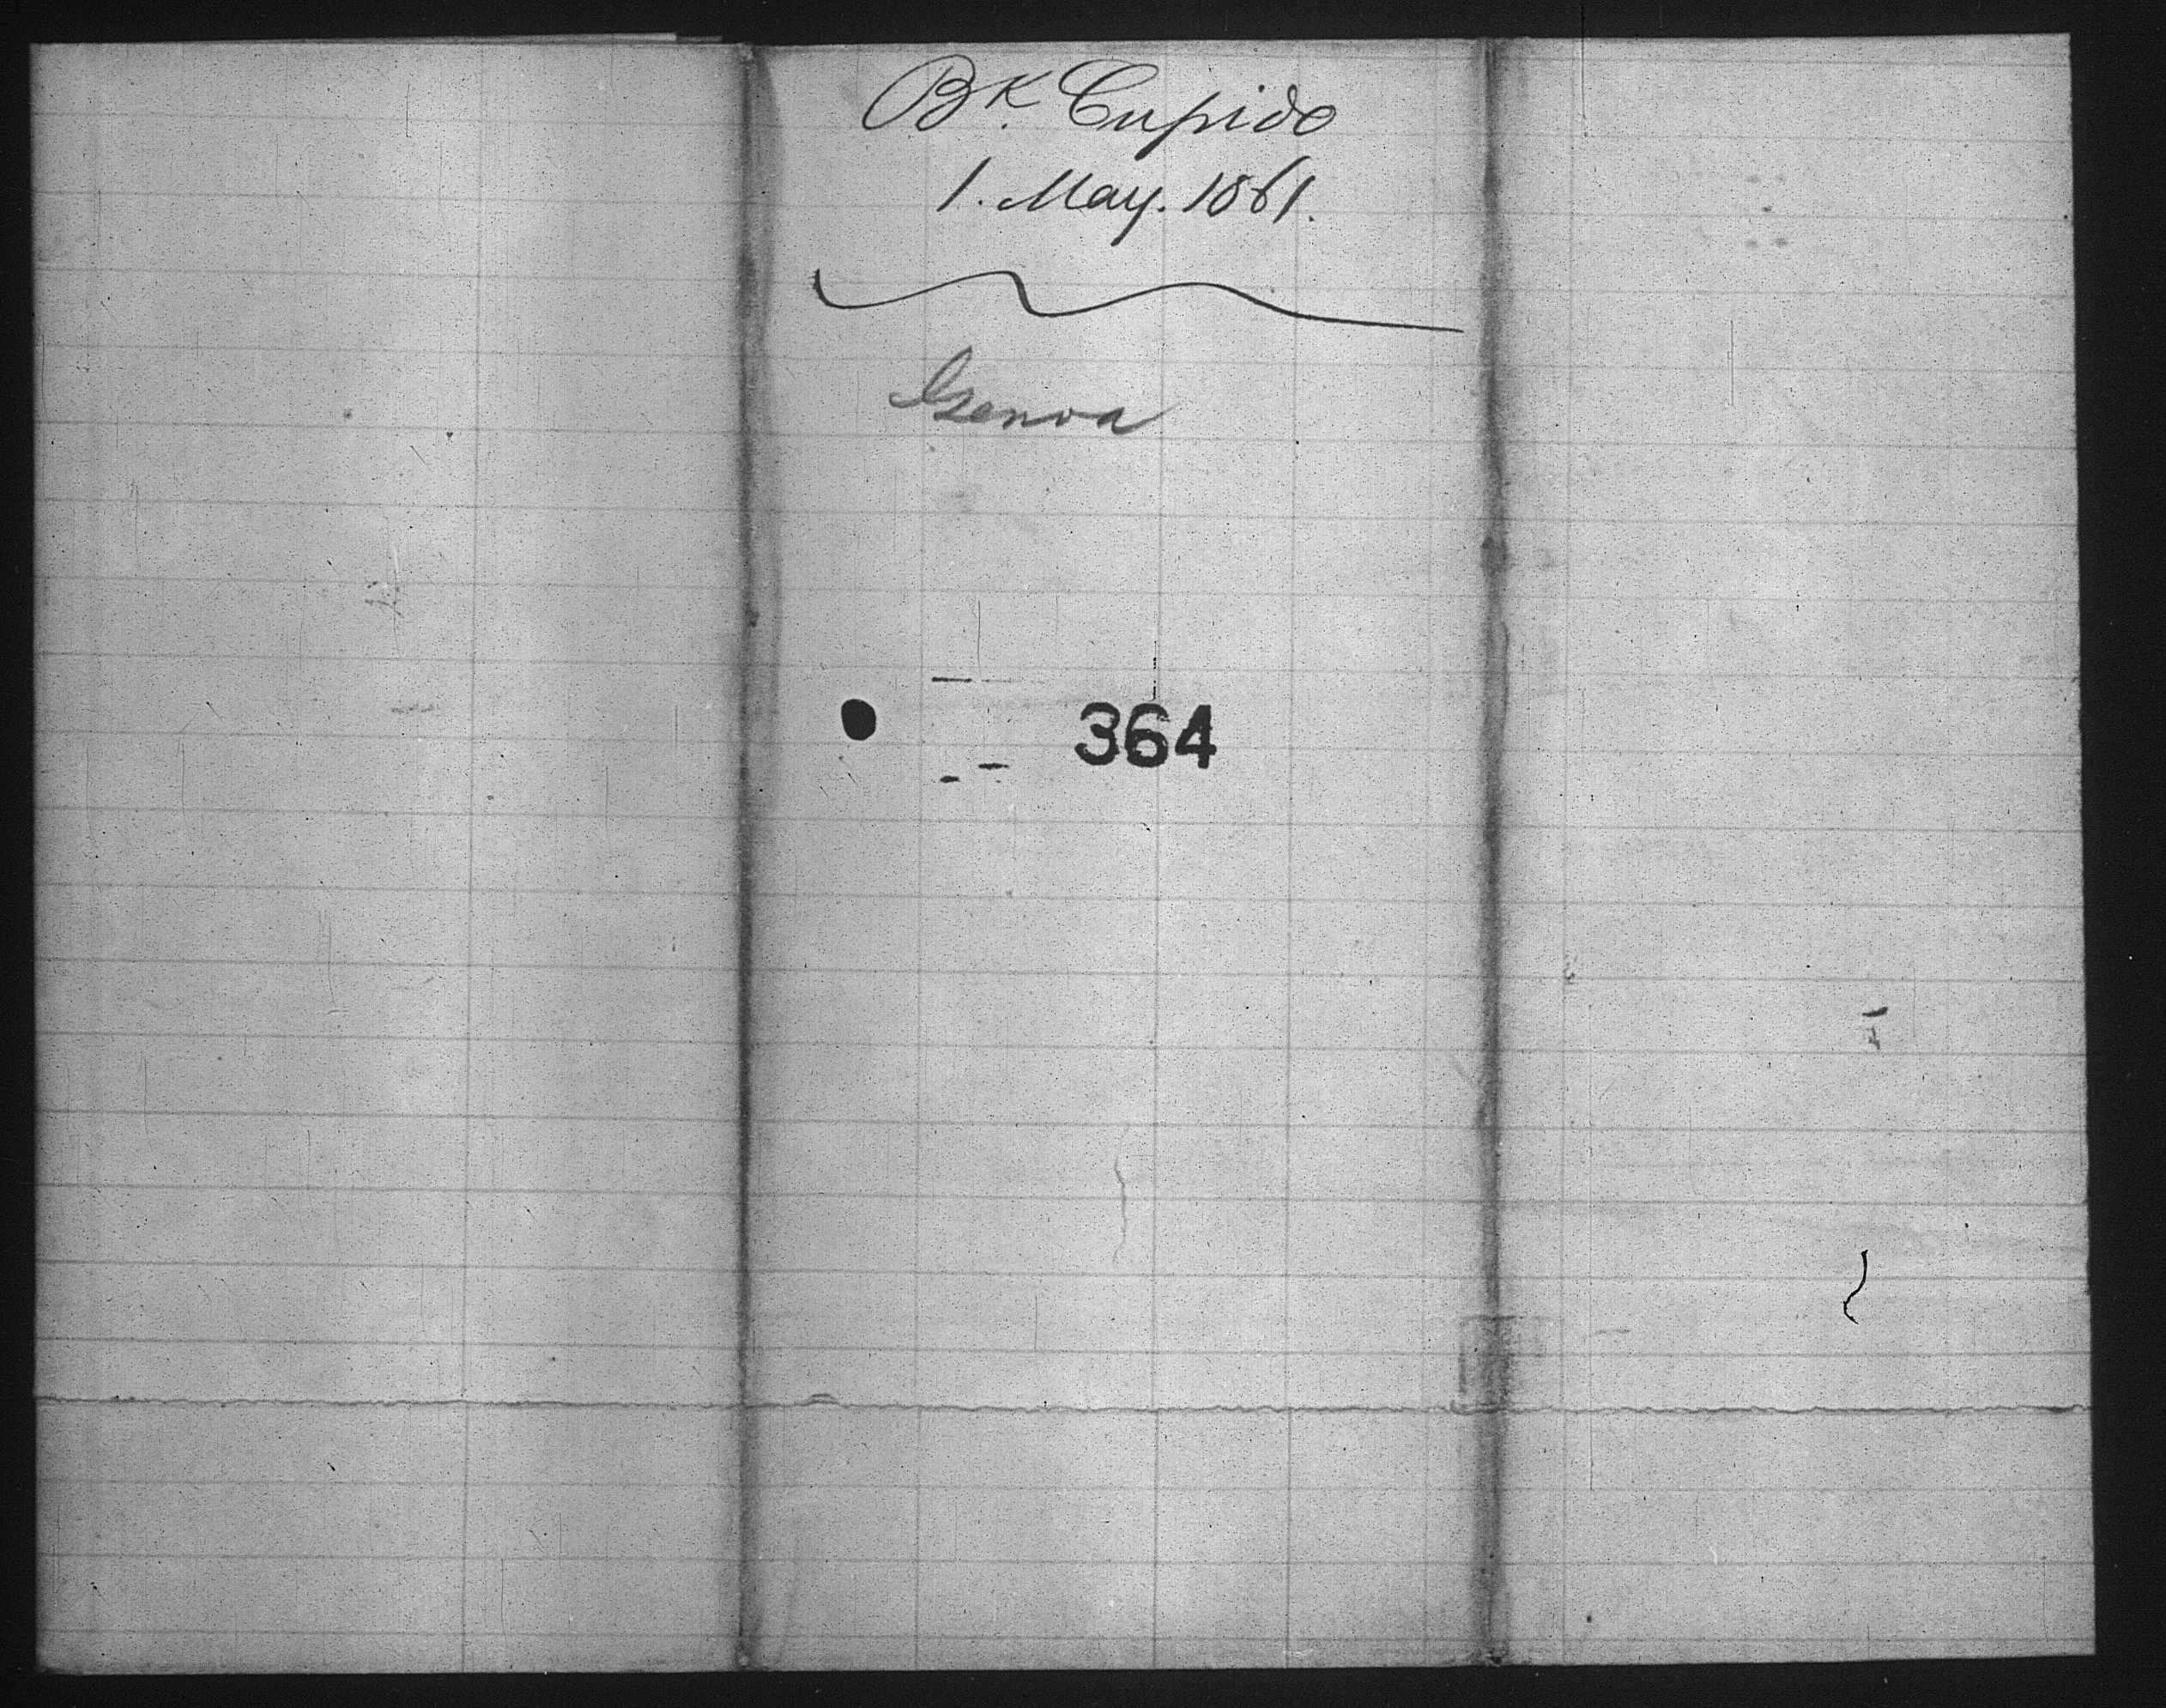 Bk. Cupido
1. May. 1861.
Genoa
364